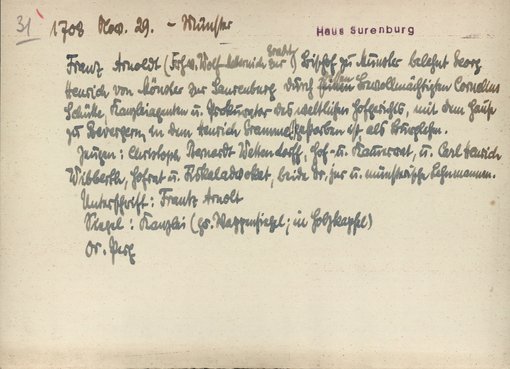 31 1708 Nov. 29. - Münster
Haus Surenburg
Franz Arnoldt (Frh. v. Wolf-Metternich zur Gracht) Bischof zu Münster belehnt Georg
Henrich von Mönster zur Surenburg durch seinen Bevollmächtigten Cornelius
Schütte, Kanzleiagenten u. Prokurator des weltlichen Hofgerichts, mit dem Hause
zu Bevergern, in dem Henrich gestorben ist, als Burglehen.
Zeugen: Christoph Bernardt Wettendorff, Hof- u. Kammerrat, u. Carl Henrich
Wibberth, Hofrat u. Fiskaladvokat, beide Dr. jur u. münsterische Lehnmannen.
Unterschrift: Frantz Arnolt
Siegel: Kanzlei (gr. Wappensiegel; in Holzkapsel)
Or. Perg